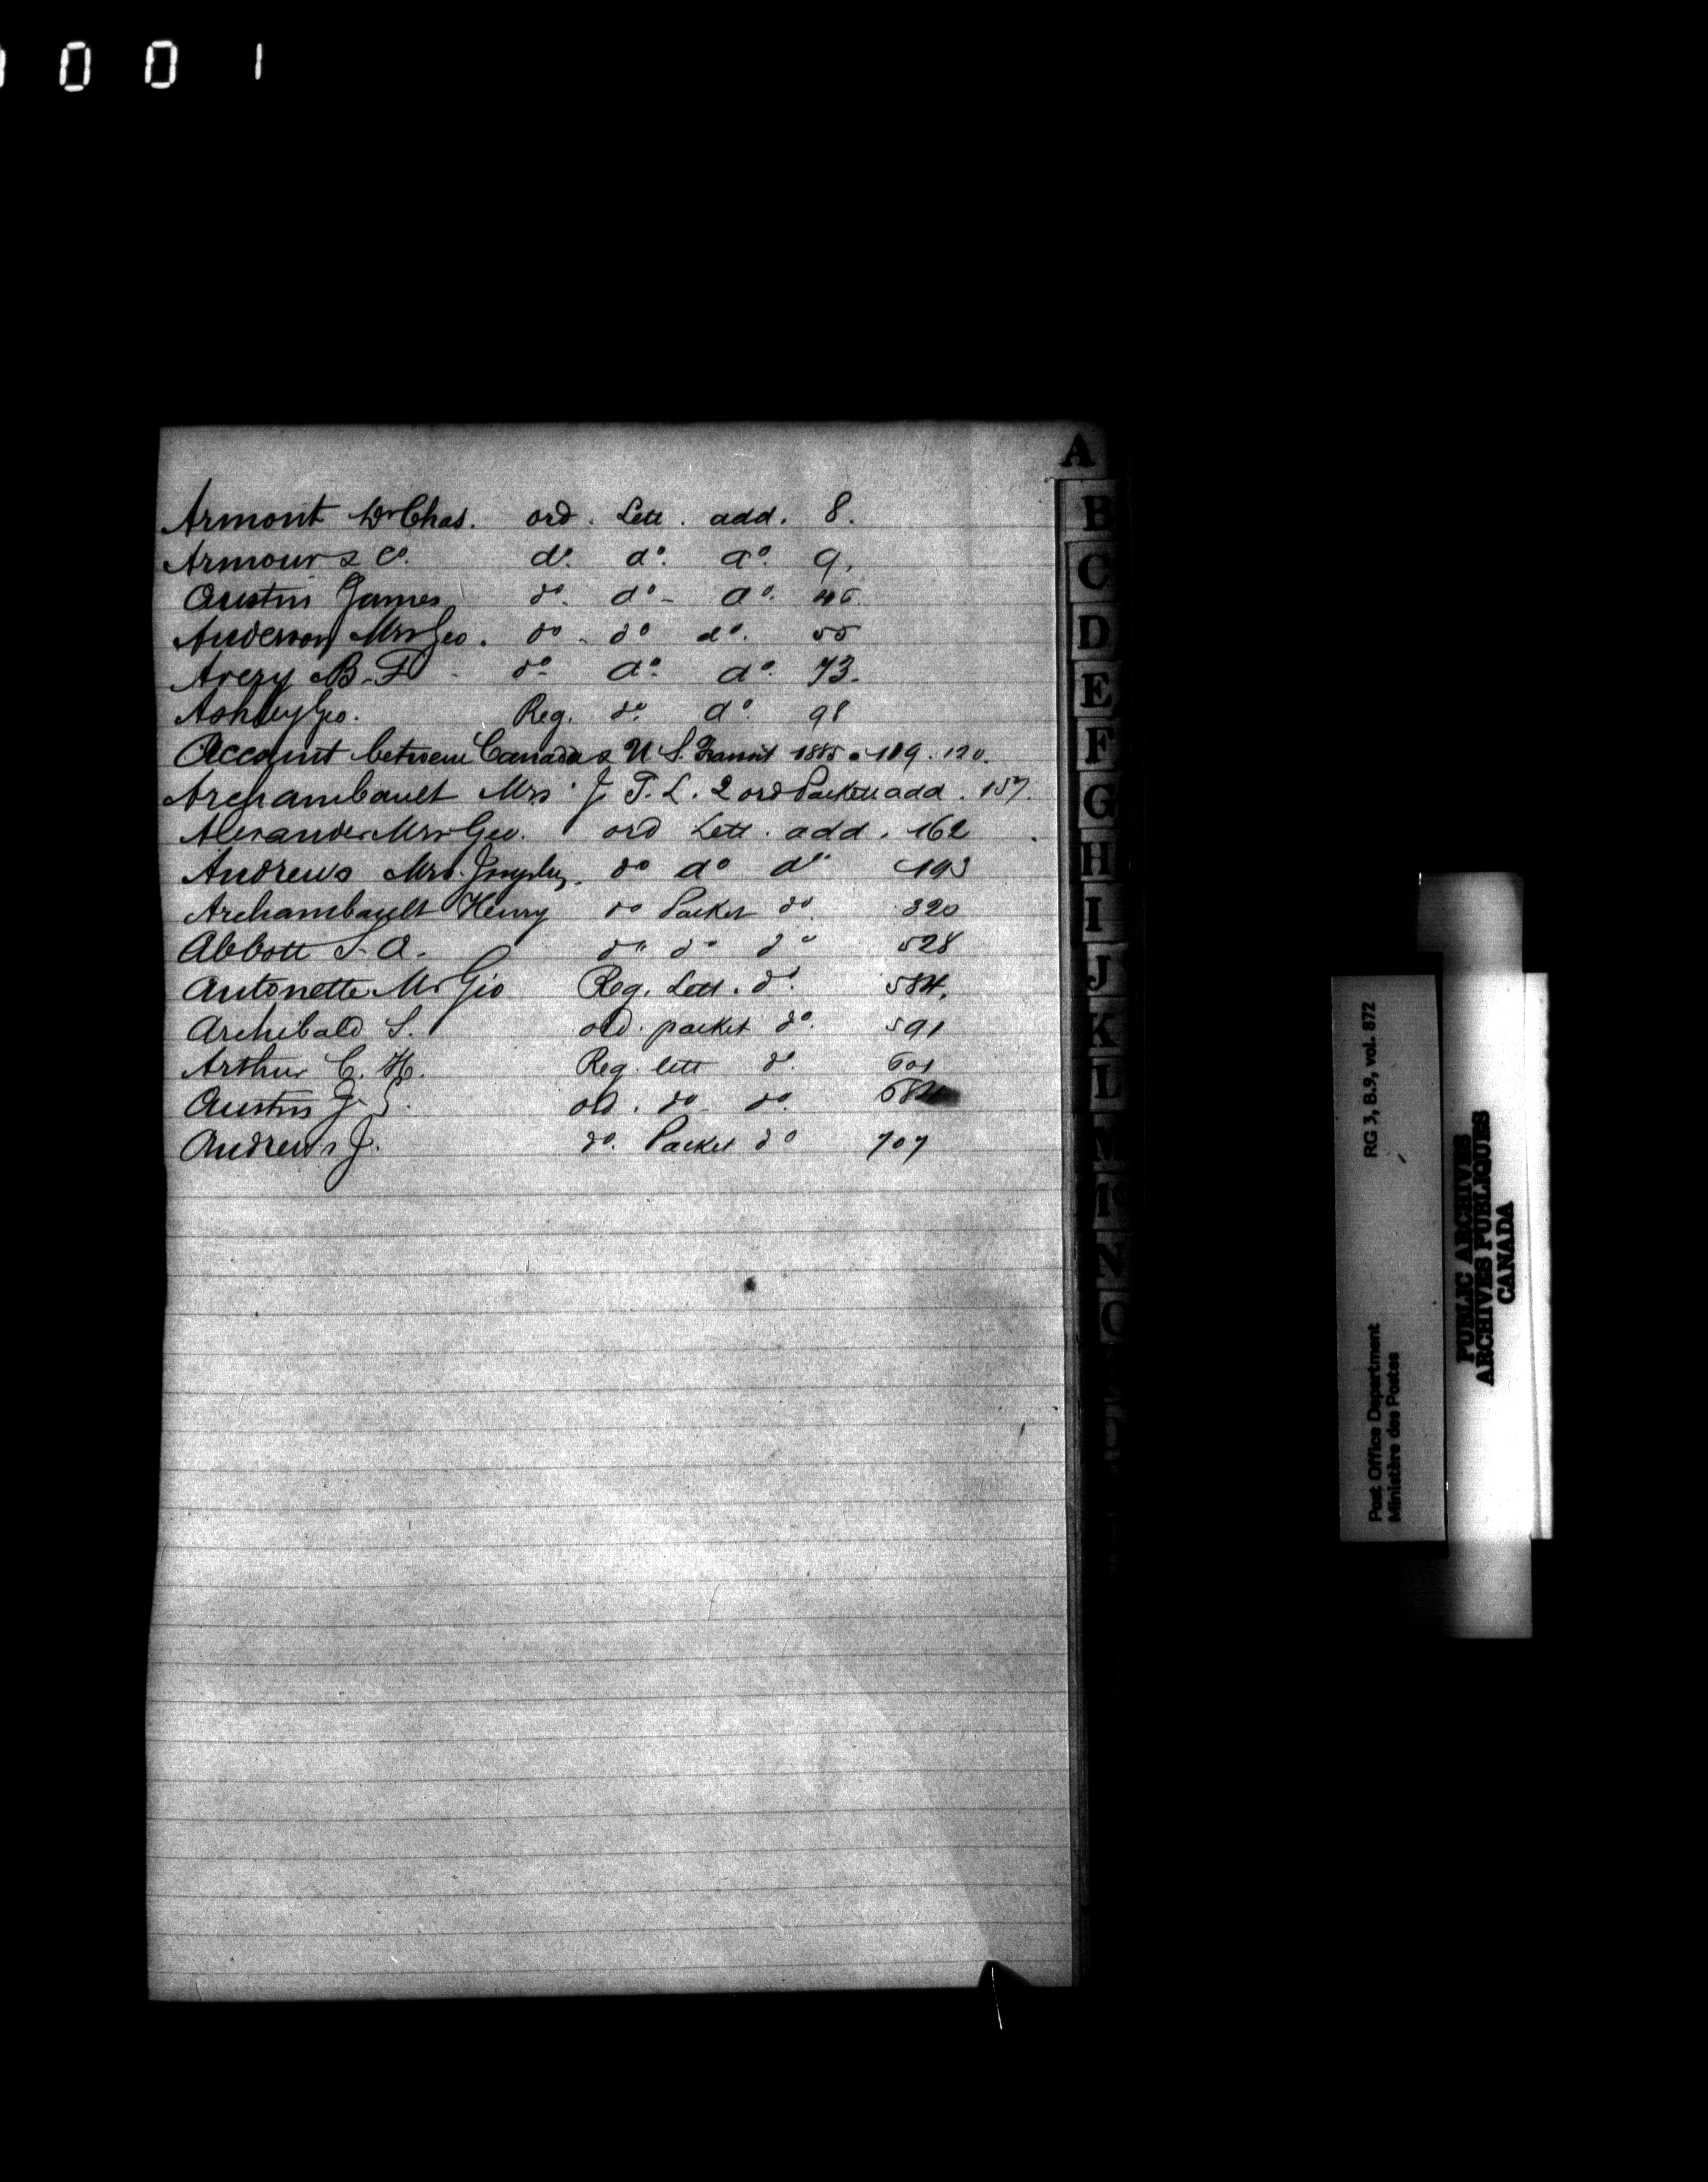 0 0 1
A
Armont Dr Chas. ord. Lett. add. 8.
Armour & Co. do. do. do. 9.
Austin James do. do - do. 46.
Anderson Mrs Geo. do - do do. 55
Avery B. F. - do do. do. 73.
Ashley Geo. Reg. do. do. 98
Account between Canada & U.S. Transit 1885 . 119 . 120.
Archambault Mrs J. T. L. 2 ord Packets add. 157.
Alexander Mrs Geo. ord Lett. add. 162
Andrews Mrs. do do do 193
Archambault Henry do Packet do. 320
Abbott S. A. do do do 528
Antonette M. Gio Reg. Lett. do. 584.
Archibald S. ord. packet do. 591
Arthur C. H. Reg. lett do. 601
Austin J. S. ord. do - do.
Andrews J. do. Packet do 707
B
C
D
E
F
G
H
I
J
K
L
N
O
Post Office Department
Ministère des Postes
RG 3, B.9, vol. 872
PUBLIC ARCHIVES
ARCHIVES PUBLIQUES
CANADA